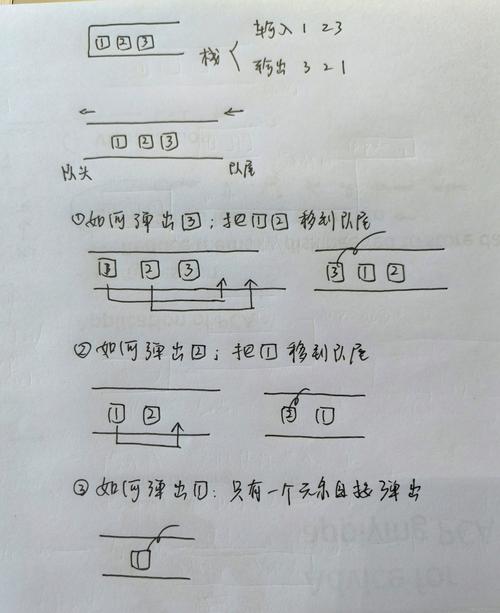 1 2 3
栈
输入 1 2 3
输出 3 2 1
1 2 3
队头 队尾
①如何弹出3；把1 2 移到队尾
1 2 3
3 1 2
②如何弹出2；把1移到队尾
1 2
2 1
③如何弹出1：只有一个元素直接弹出
1